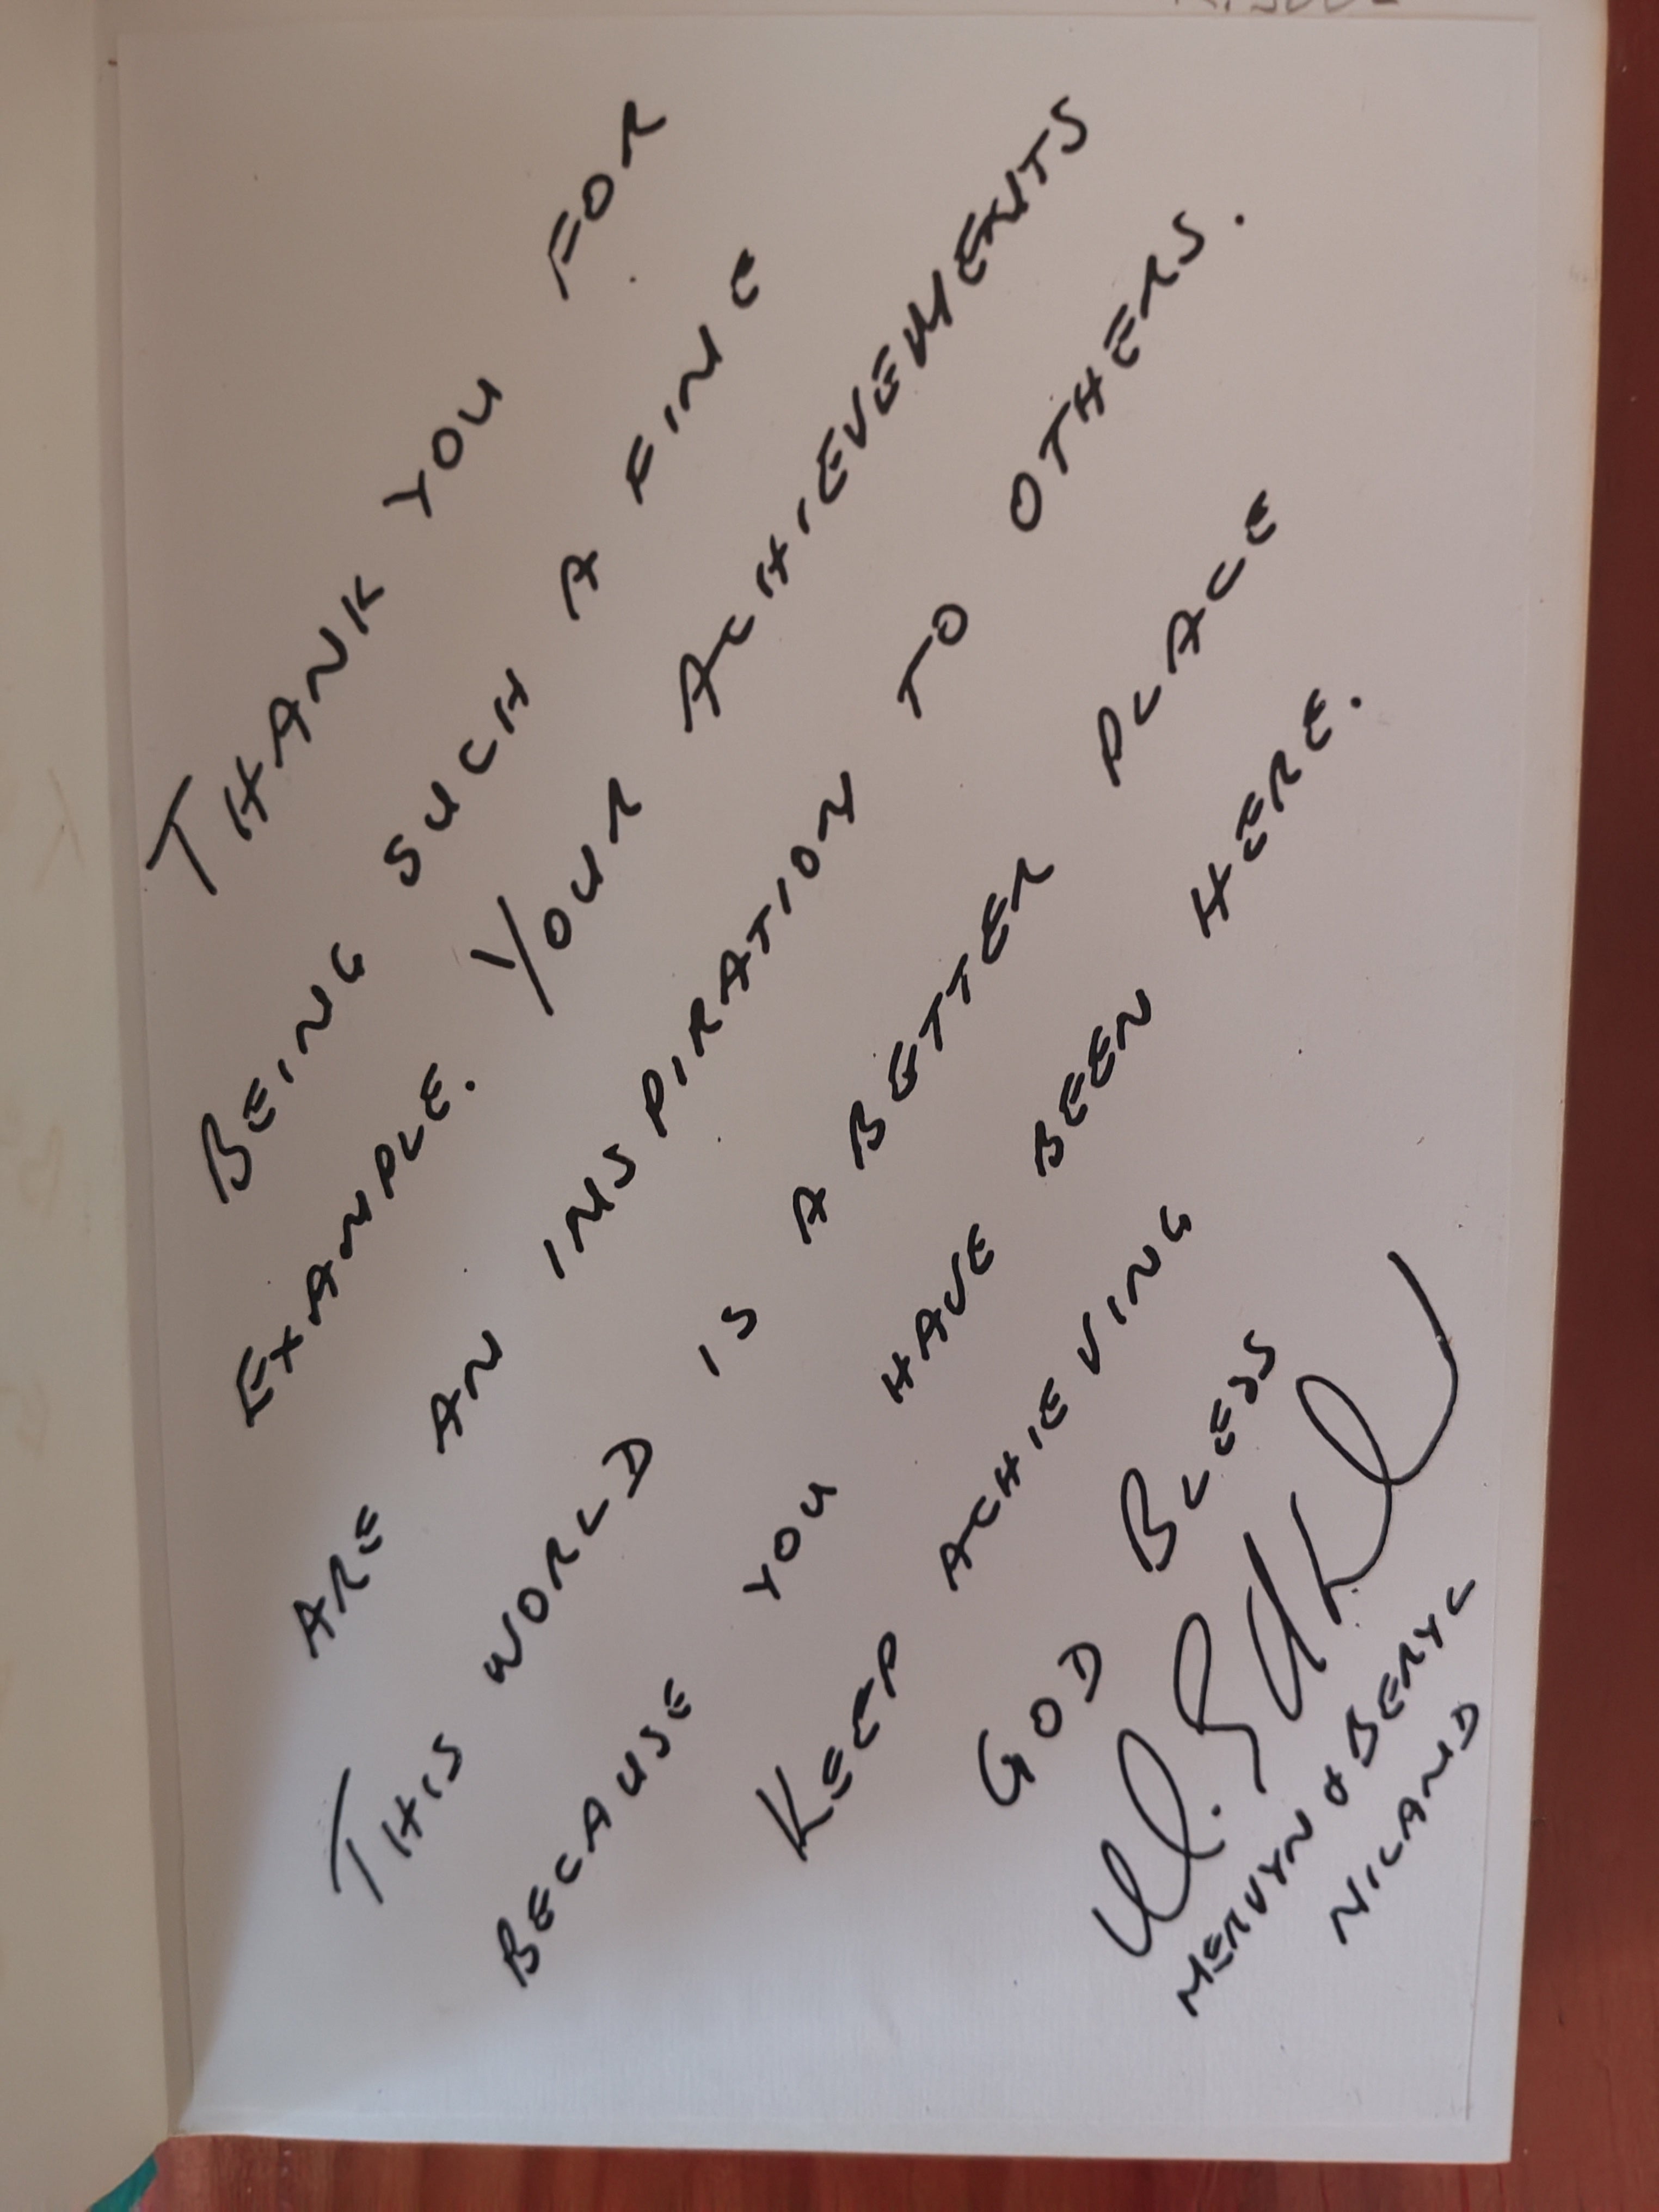 THANK YOU FOR
BEING SUCH A FINE
EXAMPLE. YOUR ACHIEVEMENTS
ARE AN INSPIRATION TO OTHERS.
THIS WORLD IS A BETTER PLACE
BECAUSE YOU HAVE BEEN HERE.
KEEP ACHIEVING
GOD BLESS
MERVYN & BERYL
NILAND